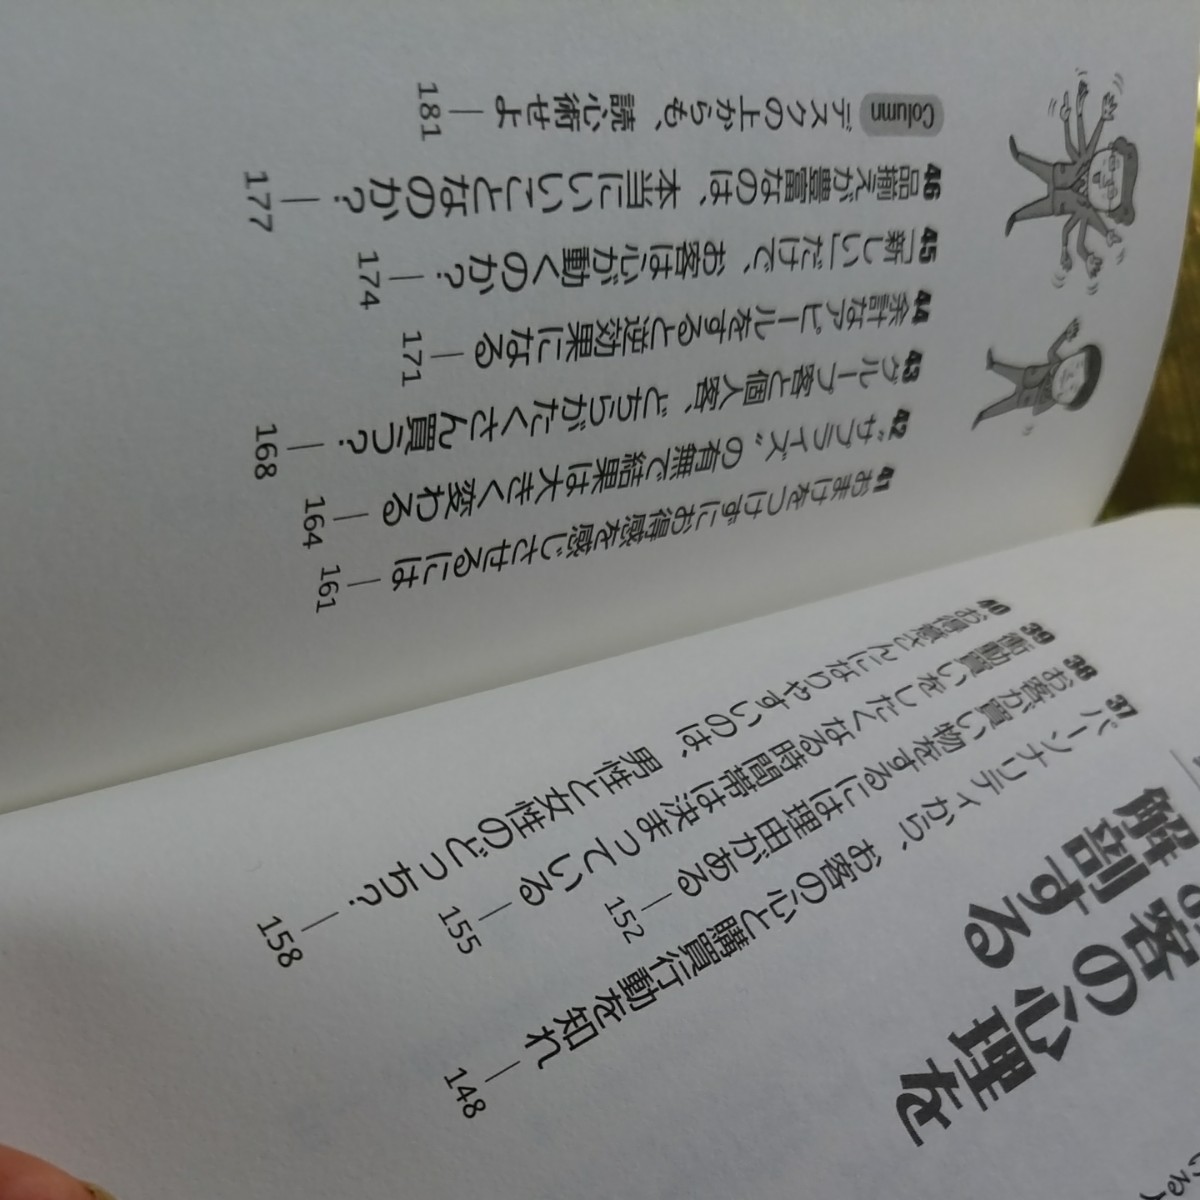 お客の心理を
解剖する
37 パーソナリティから、お客の心と購買行動を知れ ― 148
38 お客が買い物をするには理由がある ― 152
39 衝動買いをしたくなる時間帯は決まっている ― 155
40 お得意さんになりやすいのは、男性と女性のどっち? ― 158
41 おまけをつけずにお得感を感じさせるには ― 161
42 “サプライズ”の有無で結果は大きく変わる ― 164
43 グループ客と個人客、どちらがたくさん買う? ― 168
44 余計なアピールをすると逆効果になる ― 171
45 「新しい」だけで、お客は心が動くのか? ― 174
46 品揃えが豊富なのは、本当にいいことなのか? ― 177
Column デスクの上からも、読心術せよ ― 181